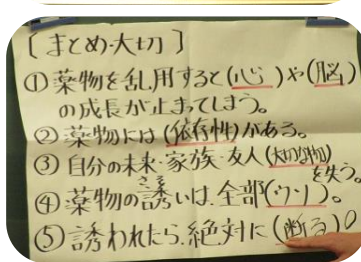 〔まとめ・大切〕
①薬物を乱用すると(心)や(脳)
の成長が止まってしまう。
②薬物には(依存性)がある。
③自分の未来・家族・友人(大切な物)
を失う。
さそ
④薬物の誘いは、全部(ウソ)。
⑤誘われたら、絶対に(断る)。